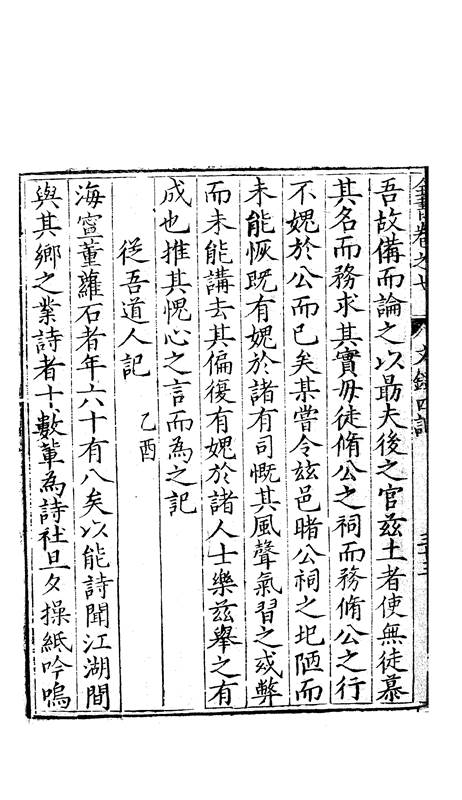 吾故備而論之以勗夫後之官兹土者使無徒慕
其名而務求其實毋徒脩公之祠而務脩公之行
不媿於公而已矣某嘗令兹邑睹公祠之圮陋而
未能恢既有媿於諸有司慨其風聲氣習之或弊
而未能講去其偏復有媿於諸人士樂兹舉之有
成也推其愧心之言而為之記
從吾道人記 乙酉
海寧董蘿石者年六十有八矣以能詩聞江湖間
與其鄉之業詩者十數輩為詩社旦夕操紙吟嗚